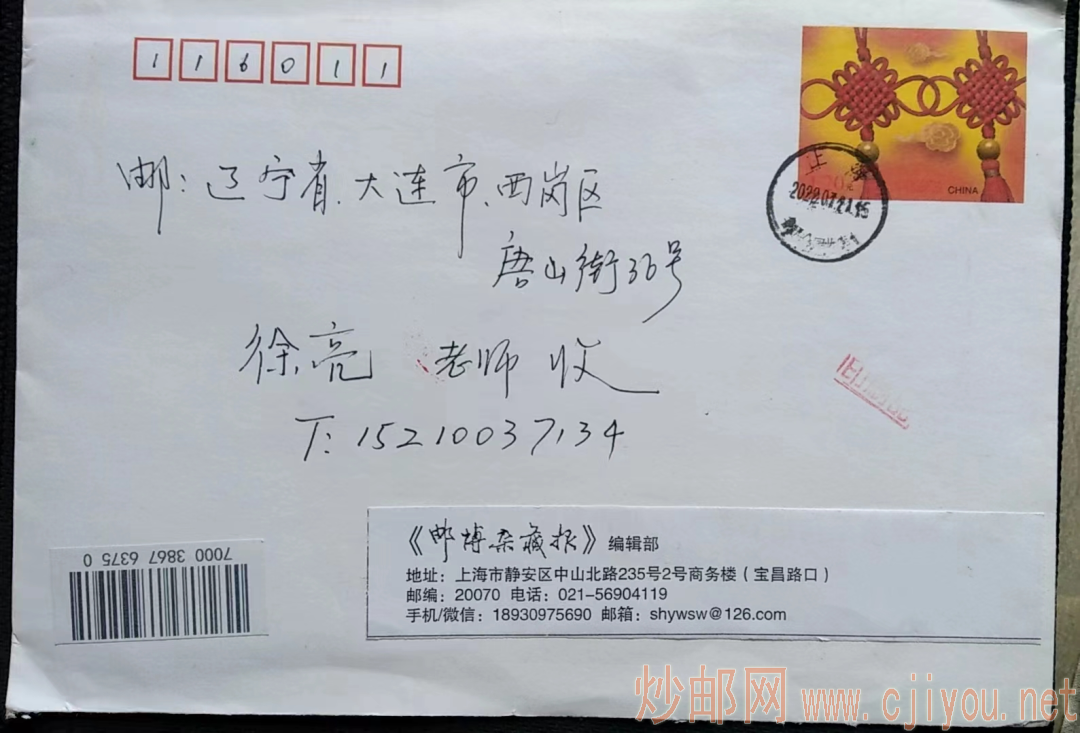 116011
CHINA
上海
2022.07.21.15
邮：辽宁省、大连市、西岗区
唐山街36号
徐亮 老师 收
T：15210037134
《邮博集藏报》编辑部
地址：上海市静安区中山北路235号2号商务楼（宝昌路口）
邮编：20070 电话：021-56904119
手机/微信：18930975690 邮箱：shywsw@126.com
7000 3867 6375 0
炒邮网 www.cjiyou.net